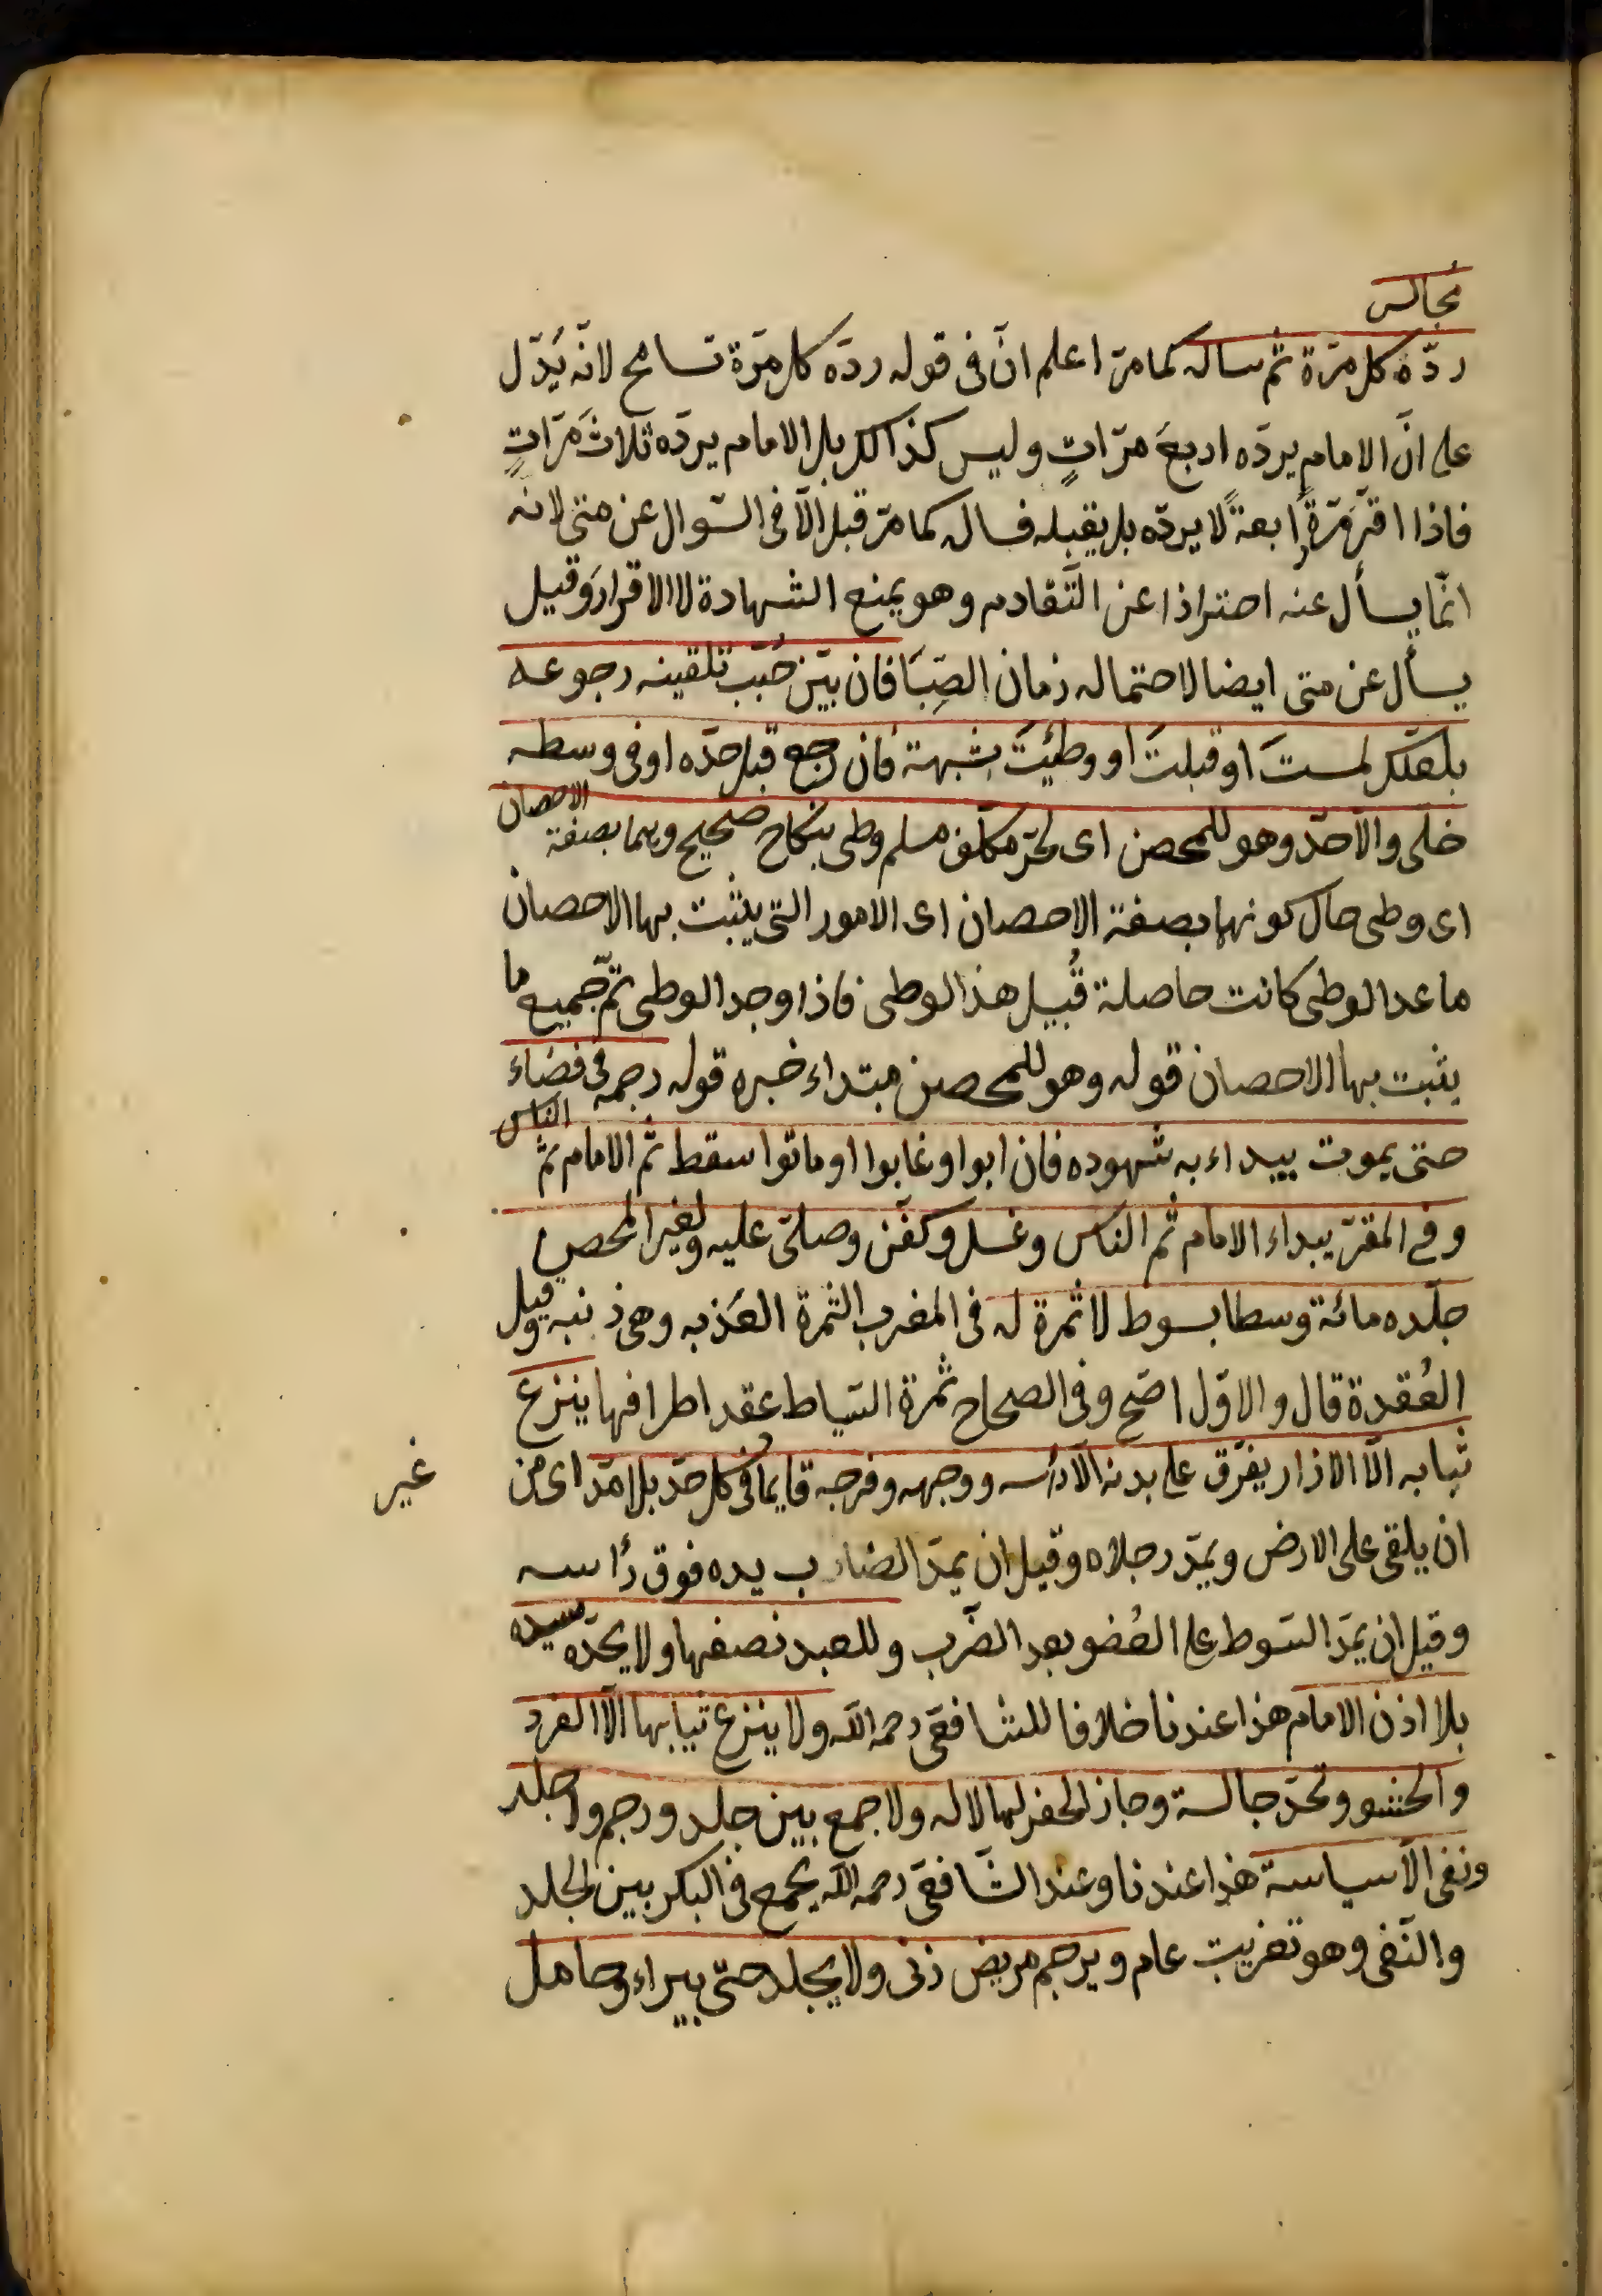 مجالس
ردّه كل مرّة ثم ساله كما مرّ اعلم انّ فى قوله ردّه كل مرّة تسامح لانّه يدّل
على انّ الامام يردّه اربعَ مرّاتٍ وليس كذالك بل الامام يردّه ثلاث مرّاتٍ
فاذا اقرّ مرّةً رابعةً لا يردّه بل يقبله فساله كما مرّ قبل الّا فى السّوال عن متى لانه
انّما يسأل عنه احترازا عن التّقادم وهو يمنع الشهادة لا الاقرار وقيل
يسأل عن متى ايضا لاحتماله زمان الصِّبَا فان بيّن حُبّب تلقينه رجوعه
بلعلّك لمستَ او قبلتَ او وطيئتَ بشبهة فان رجع قبل حدّه او فى وسطه
خلى والّا حدّ وهو للمحصن اى لحرّ مكلّف مسلم وطى بنكاح صحيح وهما بصفة الاحصان
اى وطى حال كونهما بصفة الاحصان اى الامور التى يثبت بها الاحصان
ما عدا الوطى كانت حاصلة قُبيل هذا الوطى فاذا وجد الوطى تمّ جميع ما
يثبت بها الاحصان قوله وهو للمحصن مبتداء خبره قوله رجمه فى فضاء
حتى يموت يبداء به شهوده فان ابوا او غابوا او ماتوا سقط ثم الامام ثم الناس
وفى المقرّ يبداء الامام ثم الناس وغسل وكفّن وصلّى عليه ولغير المحصن
جلده مائة وسطا بسوط لا ثمرة له فى المغرب الثمرة العَذبه وهى ذنبه وقيل
العُقدة قال والاوّل اصَح وفى الصحاح ثمرة السّياط عقد اطرافها ينزع
ثيابه الّا الازار يفرّق على بدنه الّا رأسه ووجهه وفرجه قايما فى كل حدّ بلا مدّ اى من غير
ان يلقى على الارض ويمدّ رجلاه وقيل ان يمدّ الضارب يده فوق رأسه
وقيل ان يمدّ السّوط على العُضو بعد الضّرب وللعبد نصفها ولا يحدّه سيده
بلا اذن الامام هذا عندنا خلافا للشافعى رحمه الله ولا ينزع ثيابها الّا الفرد
والحشو وتحدّ جالسة وجاز الحفر لها لا له ولا جمع بين جلد ورجم ولا جلد
ونفى الّا سياسة هذا عندنا وعند الشّافعى رحمه الله يجمع فى البكر بين الجلد
والنّفى وهو تغريب عام ويرجم مريض زنى ولا يجلد حتّى يبراء وحامل